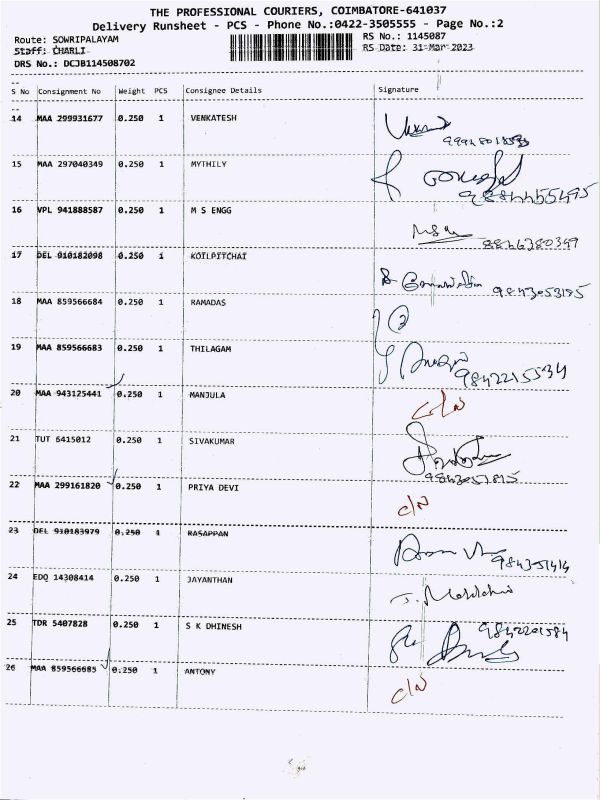 THE PROFESSIONAL COURIERS, COIMBATORE-641037
Delivery Runsheet - PCS - Phone No.:0422-3505555 - Page No.:2
Route: SOWRIPALAYAM RS No.: 1145087
Staff: CHARLI RS Date: 31-Mar-2023
DRS No.: DCJB114508702
S No Consignment No Weight PCS Consignee Details Signature
14 MAA 299931677 0.250 1 VENKATESH
15 MAA 297040349 0.250 1 MYTHILY
9884455495
16 VPL 941888587 0.250 1 M S ENGG
8846380349
17 DEL 910182098 0.250 1 KOILPITCHAI
9843053185
18 MAA 859566684 0.250 1 RAMADAS
19 MAA 859566683 0.250 1 THILAGAM
9842215534
20 MAA 943125441 0.250 1 MANJULA C/N
21 TUT 6415012 0.250 1 SIVAKUMAR
22 MAA 299161820 0.250 1 PRIYA DEVI C/N
23 DEL 910183979 0.250 1 RASAPPAN
24 EDQ 14308414 0.250 1 JAYANTHAN
25 TDR 5407828 0.250 1 S K DHINESH 9842201584
26 MAA 859566685 0.250 1 ANTONY C/N